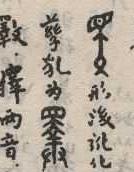 形後訛化
孳乳為
斁擇兩音.